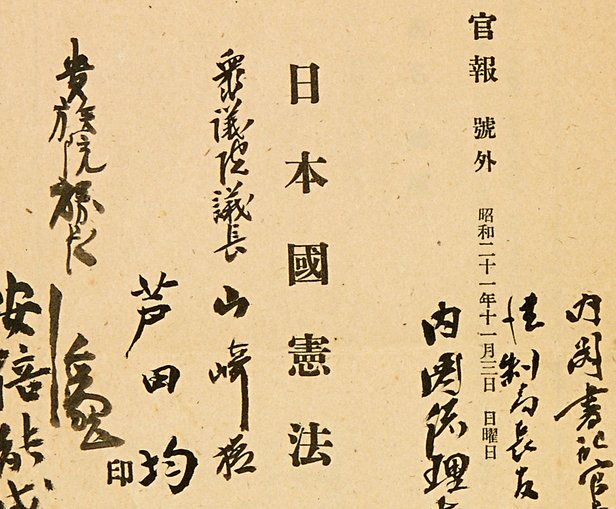 内閣書記官
法制局長官
官報 號外 昭和二十一年十一月三日 日曜日
内閣総理
日本國憲法
衆議院議長 山崎猛
芦田均
印
貴族院
安倍能成